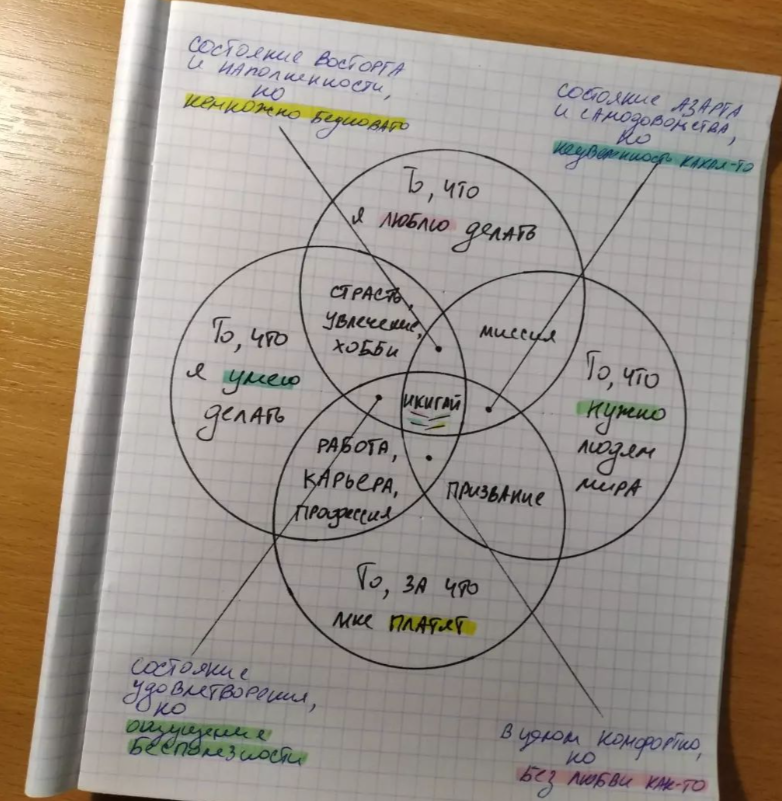 СОСТОЯНИЕ ВОСТОРГА
И НАПОЛНЕННОСТИ,
НО
НЕМНОЖКО БЕДНОВАТО
СОСТОЯНИЕ АЗАРТА
И САМОДОВОЛЬСТВА,
НО
НЕУВЕРЕННОСТЬ КАКАЯ-ТО
То, что
я люблю делать
СТРАСТЬ,
УВЛЕЧЕНИЕ,
ХОББИ
миссия
То, что
я умею
делать
То, что
нужно
людям
мира
ИКИГАЙ
РАБОТА,
КАРЬЕРА,
ПРОФЕССИЯ
ПРИЗВАНИЕ
То, за что
мне платят
СОСТОЯНИЕ
УДОВЛЕТВОРЕНИЯ,
НО
ОЩУЩЕНИЕ
БЕСПОЛЕЗНОСТИ
В ЦЕЛОМ КОМФОРТНО,
НО
БЕЗ ЛЮБВИ КАК-ТО